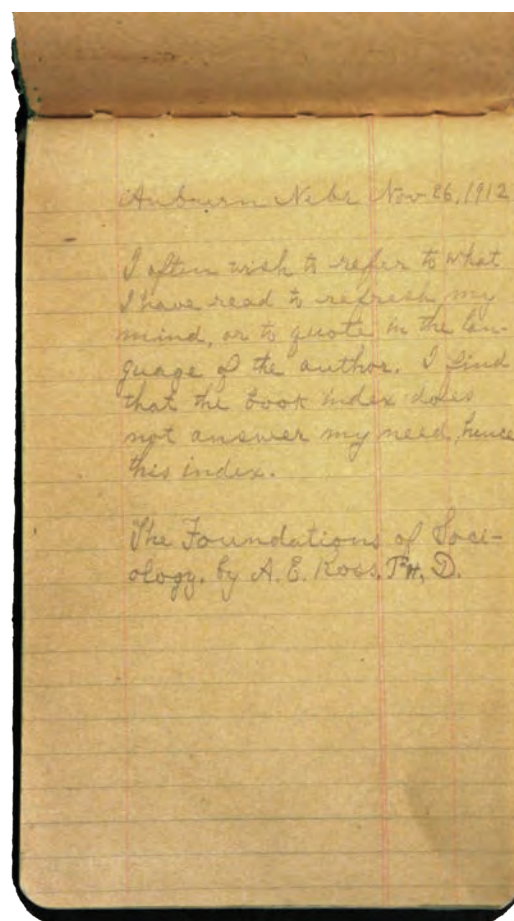 Auburn Nebr Nov 26, 1912
I often wish to refer to what
I have read to refresh my
mind, or to quote in the lan-
guage of the author. I find
that the book index does
not answer my need, hence
this index.
The Foundations of Soci-
ology. by A. E. Ross. PH, D.